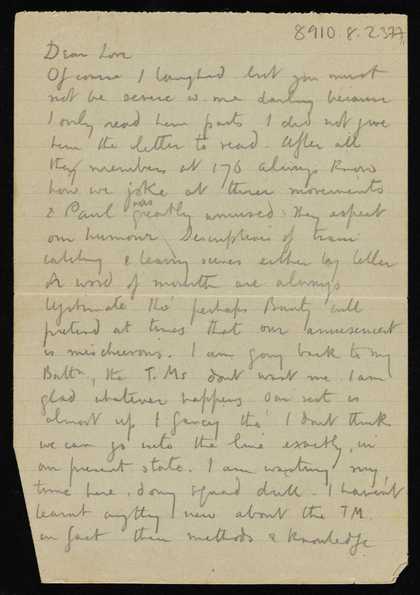 8910.8.2377
Dear Love
Of course I laughed but you must
not be severe w. me darling because
I only read him parts I did not give
him the letter to read. After all
they members at 176 always know
how we joke at their movements
& Paul was greatly amused: they expect
our humour. Descriptions of train
catching & leaving scenes either by letter
or word of mouth are always
legitimate tho' perhaps will
pretend at times that our amusement
is mischievous. I am going back to my
Battn, the T.Ms dont want me. I am
glad whatever happens. Our rest is
almost up I fancy tho' I dont think
we can go into the line exactly, in
our present state. I am wasting my
time here, doing squad drill. I havent
learnt anything new about the TM.
in fact their methods & knowledge